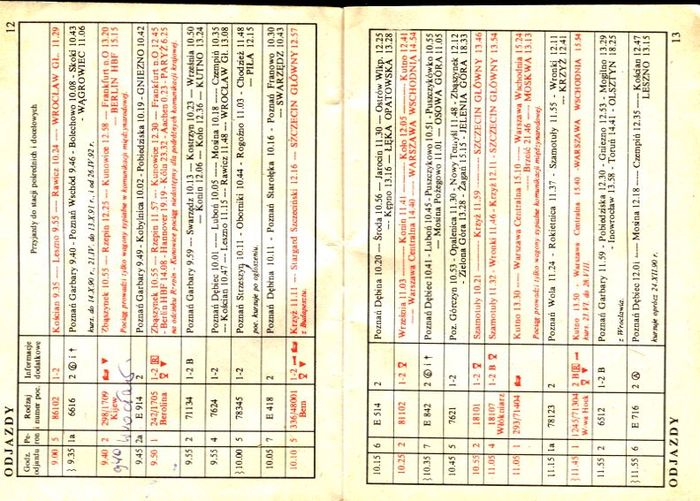 ODJAZDY 12
Godz. odjazdu
Pe- ron
Rodzaj i numer poc.
Informacje dodatkowe
Przyjazdy do stacji pośrednich i docelowych
9.00 5 86102 1-2 Kościan 9.35 — Leszno 9.55 — Rawicz 10.24 — WROCŁAW GŁ. 11.29
9.35 1a 6616 2 Poznań Garbary 9.40 - Poznań Wschód 9.46 - Bolechowo 10.08 - Skoki 10.43
- WĄGROWIEC 11.06
kurs. do 14.IX.90 r., 21.IV. do 13.IX.91 r., i od 26.IV.92 r.
9.40 2 298/1709 Zbąszynek 10.55 — Rzepin 12.25 — Kunowice 12.58 — Frankfurt n.O 13.20
Kijew — BERLIN HBF 15.15
940 Pociąg prowadzi tylko wagony sypialne w komunikacji międzynarodowej.
9.45 2a E 914 2 Poznań Garbary 9.49 - Kobylnica 10.02 - Pobiedziska 10.19 - GNIEZNO 10.42
9.50 1 242/1705 1-2 Zbąszynek 10.55 — Rzepin 11.57 — Kunowice 12.30 — Frankfurt n.O 12.45
Berolina - Berlin HBF 14.08 - Hannover 19.19 - Köln 23.32 - Aachen 0.23 - PARYŻ 6.25
na odcinku Rzepin - Kunowice pociąg niedostępny dla podróżnych komunikacji krajowej.
9.55 2 71134 1-2 B Poznań Garbary 9.59 — Swarzędz 10.13 — Kostrzyn 10.23 — Września 10.50
— Konin 12.06 — Koło 12.36 — KUTNO 13.24
9.55 4 7624 1-2 Poznań Dębiec 10.01 — Luboń 10.05 — Mosina 10.18 — Czempiń 10.35
— Kościan 10.47 — Leszno 11.15 — Rawicz 11.48 — WROCŁAW GŁ. 13.08
10.00 5 78345 1-2 Poznań Strzeszyn 10.11 - Oborniki 10.44 - Rogoźno 11.03 - Chodzież 11.48
poc. kursuje po ogłoszeniu. — PIŁA 12.15
10.05 7 E 418 2 Poznań Dębina 10.11 - Poznań Starołęka 10.16 - Poznań Franowo 10.30
- SWARZĘDZ 10.43
10.10 5 336/48001 1-2 Krzyż 11.11 — Stargard Szczeciński 12.16 — SZCZECIN GŁÓWNY 12.57
Bem z Budapesztu.
10.15 6 E 514 2 Poznań Dębina 10.20 — Środa 10.56 — Jarocin 11.30 — Ostrów Wlkp. 12.25
— Kępno 13.16 — ŁĘKA OPATOWSKA 13.28
10.25 2 81102 1-2 Września 11.03 — Konin 11.41 — Koło 12.05 — Kutno 12.41
— Warszawa Centralna 14.40 — WARSZAWA WSCHODNIA 14.54
10.35 7 E 842 2 Poznań Dębiec 10.41 - Luboń 10.45 - Puszczykowo 10.51 - Puszczykówko 10.55
— Mosina Pożegowo 11.01 — OSOWA GÓRA 11.05
10.45 5 7621 1-2 Poz. Górczyn 10.53 - Opalenica 11.30 - Nowy Tomyśl 11.48 - Zbąszynek 12.12
- Zielona Góra 13.28 - Żagań 15.15 - JELENIA GÓRA 18.33
10.55 4 18101 1-2 Szamotuły 10.21 — Krzyż 11.59 — SZCZECIN GŁÓWNY 13.46
11.05 4 18107 1-2 B Szamotuły 11.32 - Wronki 11.46 - Krzyż 12.11 - SZCZECIN GŁÓWNY 13.54
Włókniarz
11.05 1 293/71404 Kutno 13.30 — Warszawa Centralna 15.10 — Warszawa Wschodnia 15.24
— Brześć 21.46 — MOSKWA 13.13
Pociąg prowadzi tylko wagony sypialne w komunikacji międzynarodowej.
11.15 1a 78123 2 Poznań Wola 11.24 - Rokietnica 11.37 - Szamotuły 11.55 - Wronki 12.11
— KRZYŻ 12.41
11.45 1 245/71304 2 B Kutno 13.50 - Warszawa Centralna 15.40 WARSZAWA WSCHODNIA 15.54
W-wa Hoek kurs. 23.VI. do 26.VIII.
11.55 2 6512 1-2 B Poznań Garbary 11.59 - Pobiedziska 12.30 - Gniezno 12.53 - Mogilno 13.29
- Inowrocław 13.58 - Toruń 14.41 - OLSZTYN 18.25
z Wrocławia.
11.55 6 E 716 2 Poznań Dębiec 12.01 — Mosina 12.18 — Czempiń 12.35 — Kościan 12.47
LESZNO 13.15
kursuje oprócz 24.XII.90 r.
ODJAZDY 13